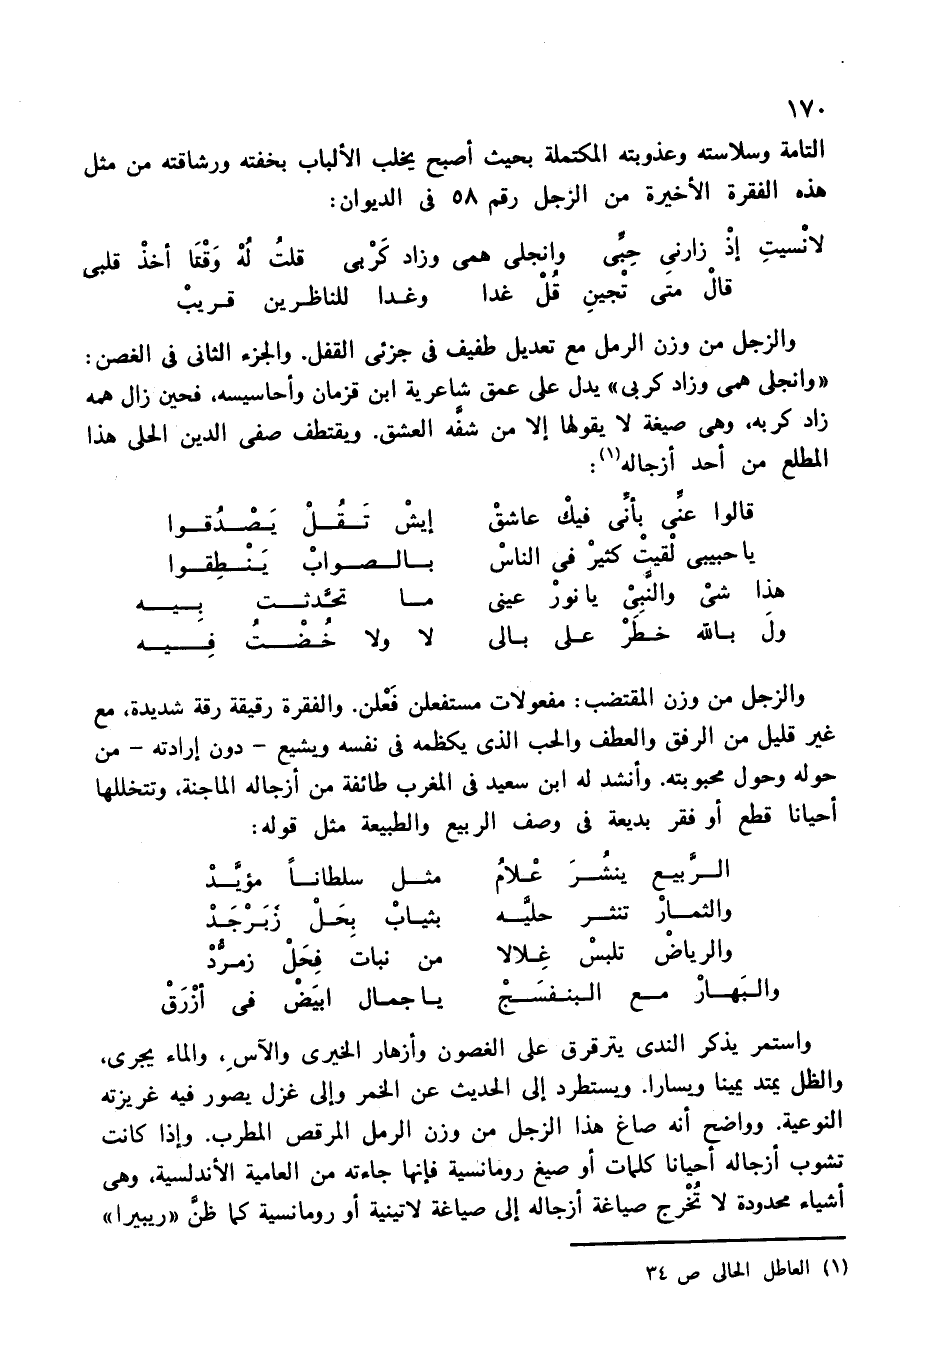 ١٧٠
التامة وسلاسته وعذوبته المكتملة بحيث أصبح يخلب الألباب بخفته ورشاقته من مثل
هذه الفقرة الأخيرة من الزجل رقم ٥٨ فى الديوان:
لانْسيتِ إذْ زارنىِ حِبِّى وانجلى همى وزاد كَرْبى قلتُ لُهْ وَقْتَا أخذْ قلبى
قالْ متى تْجينِ قُلْ غدا وغـدا للناظـرين قـريبْ
والزجل من وزن الرمل مع تعديل طفيف فى جزئى القفل. والجزء الثانى فى الغصن:
«وانجلى همى وزاد كربى» يدل على عمق شاعرية ابن قزمان وأحاسيسه، فحين زال همه
زاد كربه، وهى صيغة لا يقولها إلا من شفَّه العشق. ويقتطف صفى الدين الحلى هذا
المطلع من أحد أزجاله(١):
قالوا عنِّى بأنِّى فيكْ عاشقْ إيشْ تَـقُـلْ يَـصْـدُقـوا
ياحبيبى لْقيتْ كثيرْ فى الناسْ بـالـصـوابْ يَـنْـطِقـوا
هذا شىْ والنَّبِىْ يانورْ عينى مـا تحَّدثـت بِـيـه
ولَ بـالله خـطَرْ عـلى بـالى لا ولا خُـضْـتُ فِـيـه
والزجل من وزن المقتضب: مفعولات مستفعلن فَعْلن. والفقرة رقيقة رقة شديدة، مع
غير قليل من الرفق والعطف والحب الذى يكظمه فى نفسه ويشيع - دون إرادته - من
حوله وحول محبوبته. وأنشد له ابن سعيد فى المغرب طائفة من أزجاله الماجنة، وتتخللها
أحيانا قطع أو فقر بديعة فى وصف الربيع والطبيعة مثل قوله:
الـرَّبيـع ينشُـرَ عْـلامُ مثـل سلطانـاً مؤيَّـدْ
والثمـارْ تنثـر حليَّـه بثيـابْ بِحَلْ زَبَـرْجَـدْ
والرياضْ تلبسْ غِـلالا من نبات فِحَلْ زمـرُّدْ
والـبَهـارْ مـع الـبنـفسَـجْ يـاجمـال ابيَضْ فى أزْرَقْ
واستمر يذكر الندى يترقرق على الغصون وأزهار الخيرى والآس، والماء يجرى،
والظل يمتد يمينا ويسارا. ويستطرد إلى الحديث عن الخمر وإلى غزل يصور فيه غريزته
النوعية. وواضح أنه صاغ هذا الزجل من وزن الرمل المرقص المطرب. وإذا كانت
تشوب أزجاله أحيانا كلمات أو صيغ رومانسية فإنها جاءته من العامية الأندلسية، وهى
أشياء محدودة لا تُخْرج صياغة أزجاله إلى صياغة لاتينية أو رومانسية كما ظنَّ «ريبيرا»
(١) العاطل الحالى ص ٣٤